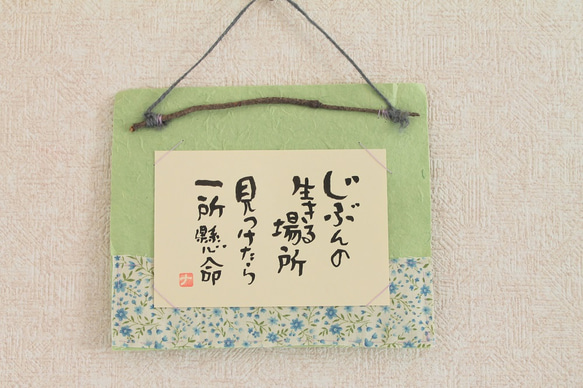 じぶんの
生きる場所
見つけたら
一所懸命
ナ